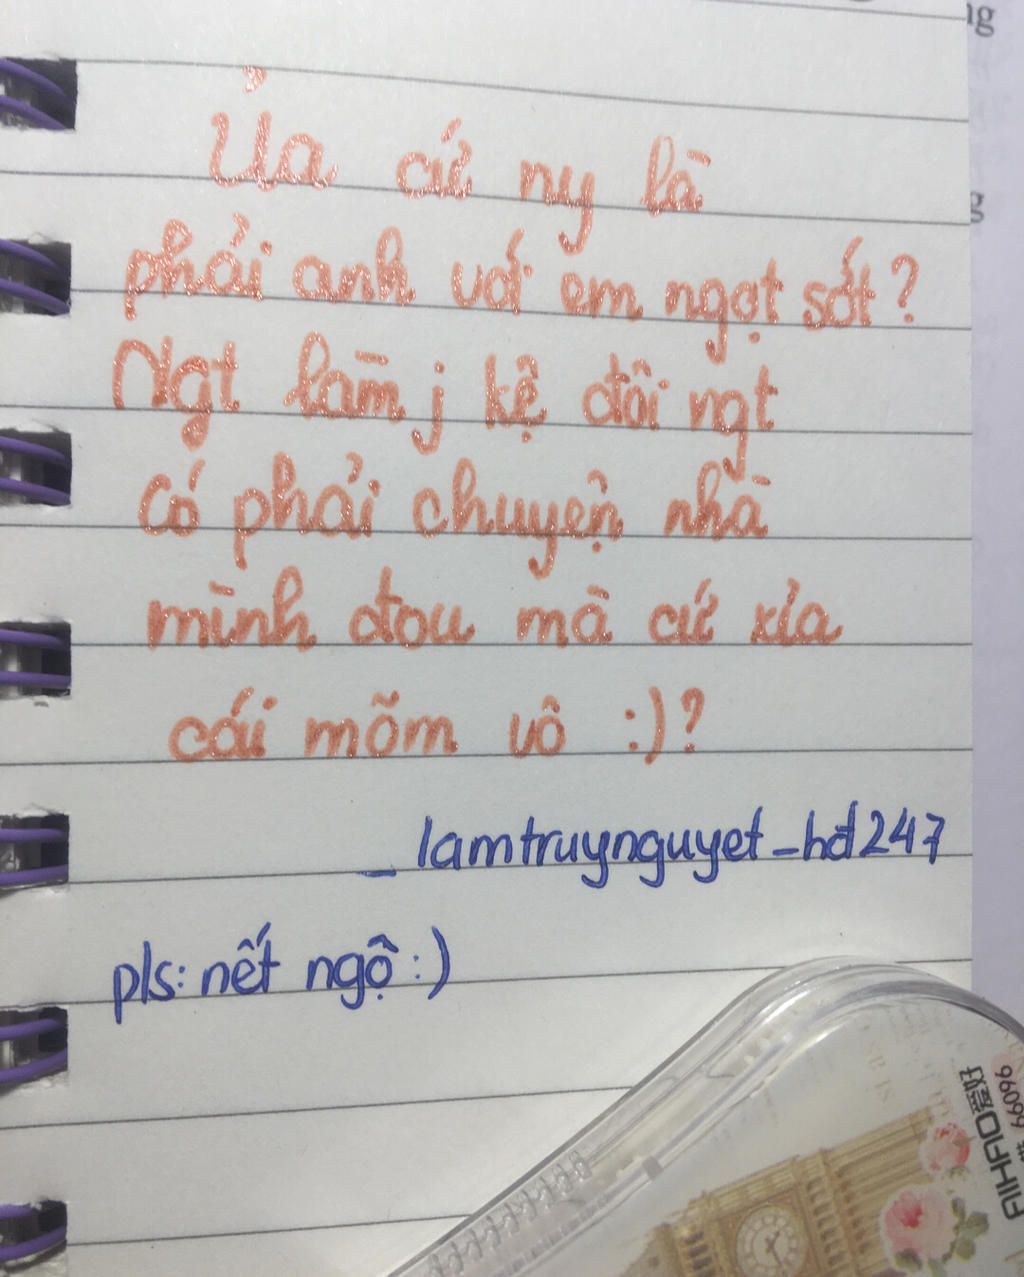 Ủa cứ ny là
phải anh với em ngọt sớt?
Ngt làm j kệ đời ngt
có phải chuyện nhà
mình đou mà cứ xỉa
cái mõm vô :)?
_ lamtruynguyet_hđ247
pls: nết ngộ :)
AIHAO爱好
66096